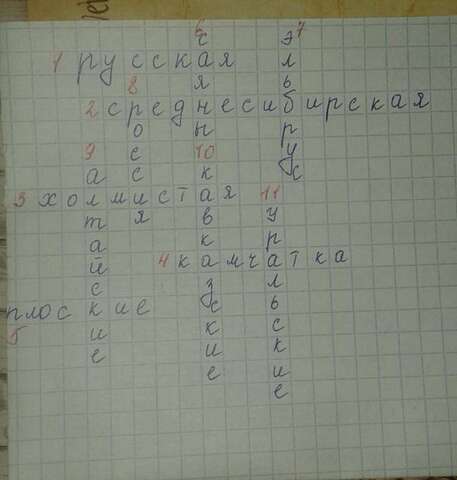 6 саяны
7 эльбрус
1 русская
8 россия
2 среднесибирская
9 алтайские
10 кавказские
3 холмистая
11 уральские
4 камчатка
5 плоские